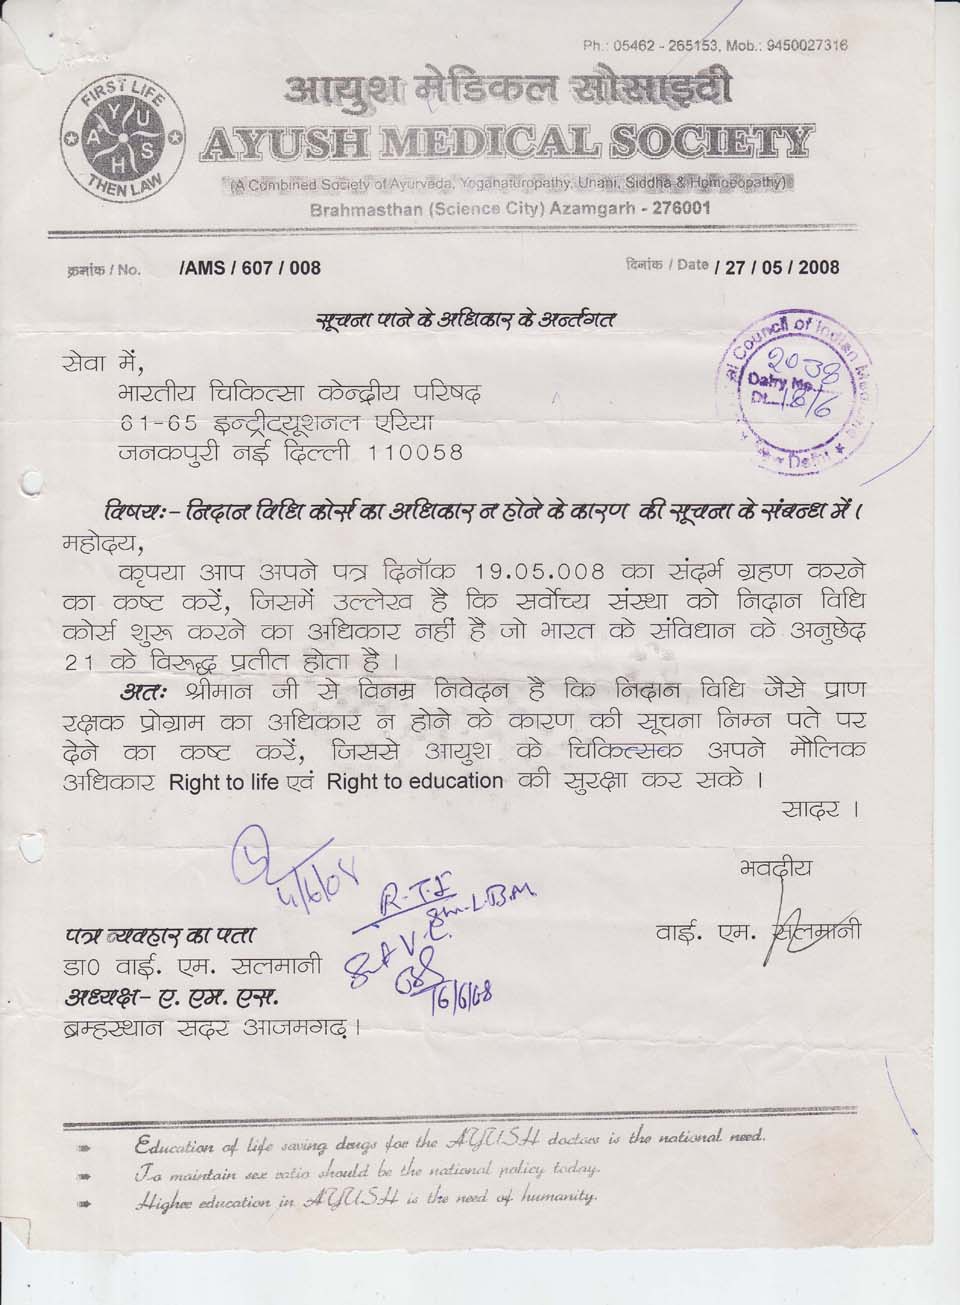 Ph.: 05462 - 265153, Mob.: 9450027316
FIRST LIFE
AYUSH
THEN LAW
आयुश मेडिकल सौसाइटी
AYUSH MEDICAL SOCIETY
(A Combined Society of Ayurveda, Yoganaturopathy, Unani, Siddha & Homoeopathy)
Brahmasthan (Science City) Azamgarh - 276001
क्रमांक / No. /AMS / 607 / 008
दिनांक / Date / 27 / 05 / 2008
सूचना पाने के अधिकार के अर्न्तगत
Council of Indian
2038
Dairy No.
Dt. 18/6
Delhi
सेवा में,
भारतीय चिकित्सा केन्द्रीय परिषद
61-65 इन्ट्रीट्यूशनल एरिया
जनकपुरी नई दिल्ली 110058
विषय:- निदान विधि कोर्स का अधिकार न होने के कारण की सूचना के संबन्ध में।
महोदय,
कृपया आप अपने पत्र दिनॉक 19.05.008 का संदर्भ ग्रहण करने
का कष्ट करें, जिसमें उल्लेख है कि सर्वोच्य संस्था को निदान विधि
कोर्स शुरू करने का अधिकार नहीं है जो भारत के संविधान के अनुछेद
21 के विरूद्ध प्रतीत होता है।
अतः श्रीमान जी से विनम्र निवेदन है कि निदान विधि जैसे प्राण
रक्षक प्रोग्राम का अधिकार न होने के कारण की सूचना निम्न पते पर
देने का कष्ट करें, जिससे आयुश के चिकित्सक अपने मौलिक
अधिकार Right to life एवं Right to education की सुरक्षा कर सके।
सादर।
भवदीय
4/6/08
R.T.I
16/6/08
वाई. एम. सलमानी
पत्र व्यवहार का पता
डा0 वाई. एम. सलमानी
अध्यक्ष- ए. एम. एस.
ब्रम्हस्थान सदर आजमगढ़।
Education of life saving drugs for the AYUSH doctors is the national need.
To maintain sex ratio should be the national policy today.
Higher education in AYUSH is the need of humanity.